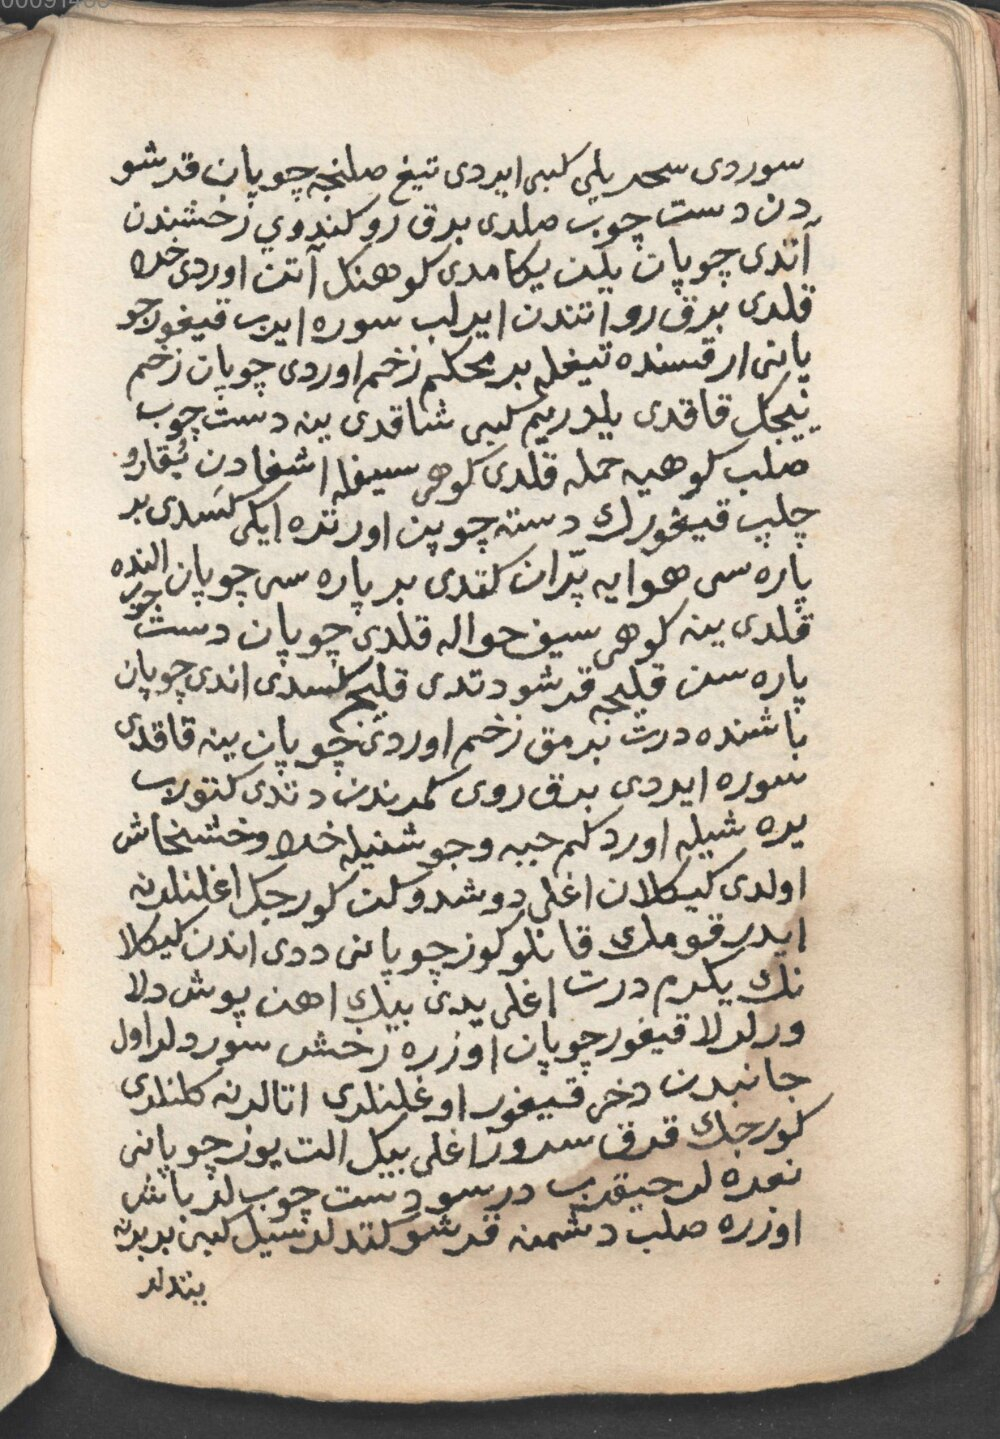 سوردی سحر یلی کبی ایردی تیغ صلنجه چوپان قرشو
دن دست چوب صلدی برق رو کندوی رخشندن
آتدی چوپان یلین یکامدی کوهنک آتن اوردی خرد
قلدی برق رو اتندن ایرلب سوره ایرب قیغور چو
پانی ارقسنده تیغله بر محکم زخم اوردی چوپان زخم
ییجک قاقدی یلدریم کبی شاقدی ینه دست چوب
صلب کوهیه حمله قلدی کوهی سیفله اشغادن یقارو
چلپ قیغورك دسته چوپن اورتده ایکی کسدی بر
پاره سی هوایه پران کتدی بر پاره سی چوپان النده
قلدی ینه کوهی سیف حواله قلدی چوپان دست چوب
پاره سن قلیجه قرشو دتدی قلیج کسدی اندی چوپان
باشنده درت برمق زخم اوردی چوپان ینه قاقدی
سوره ایردی برق روی کمرندن دتدی کتورب
یره شیله اوردکم جبه وجوشنیله خرد وخشخاش
اولدی کیکلان اغلی دوشدوکن کورجک اغلنلرنه
ایدر قومك قانلو کوز چوپانی ددی اندن کیکلا
نك یکرم درت اغلی یدی بیك اهن پوش دلا
ورلرلا قیغور چوپان اوزره رخش سوردلر اول
جانبدن دخی قیغور اوغلنلری اتالرنه کلنلری
کورجك قرق سرور اغلی بیك الت یوز چوپانی
نعره لر حیقرب درسو دست چوب لر باش
اوزره صلب دشمنه قرشو کتدلر سیل کبی بربرنه
یتدلر